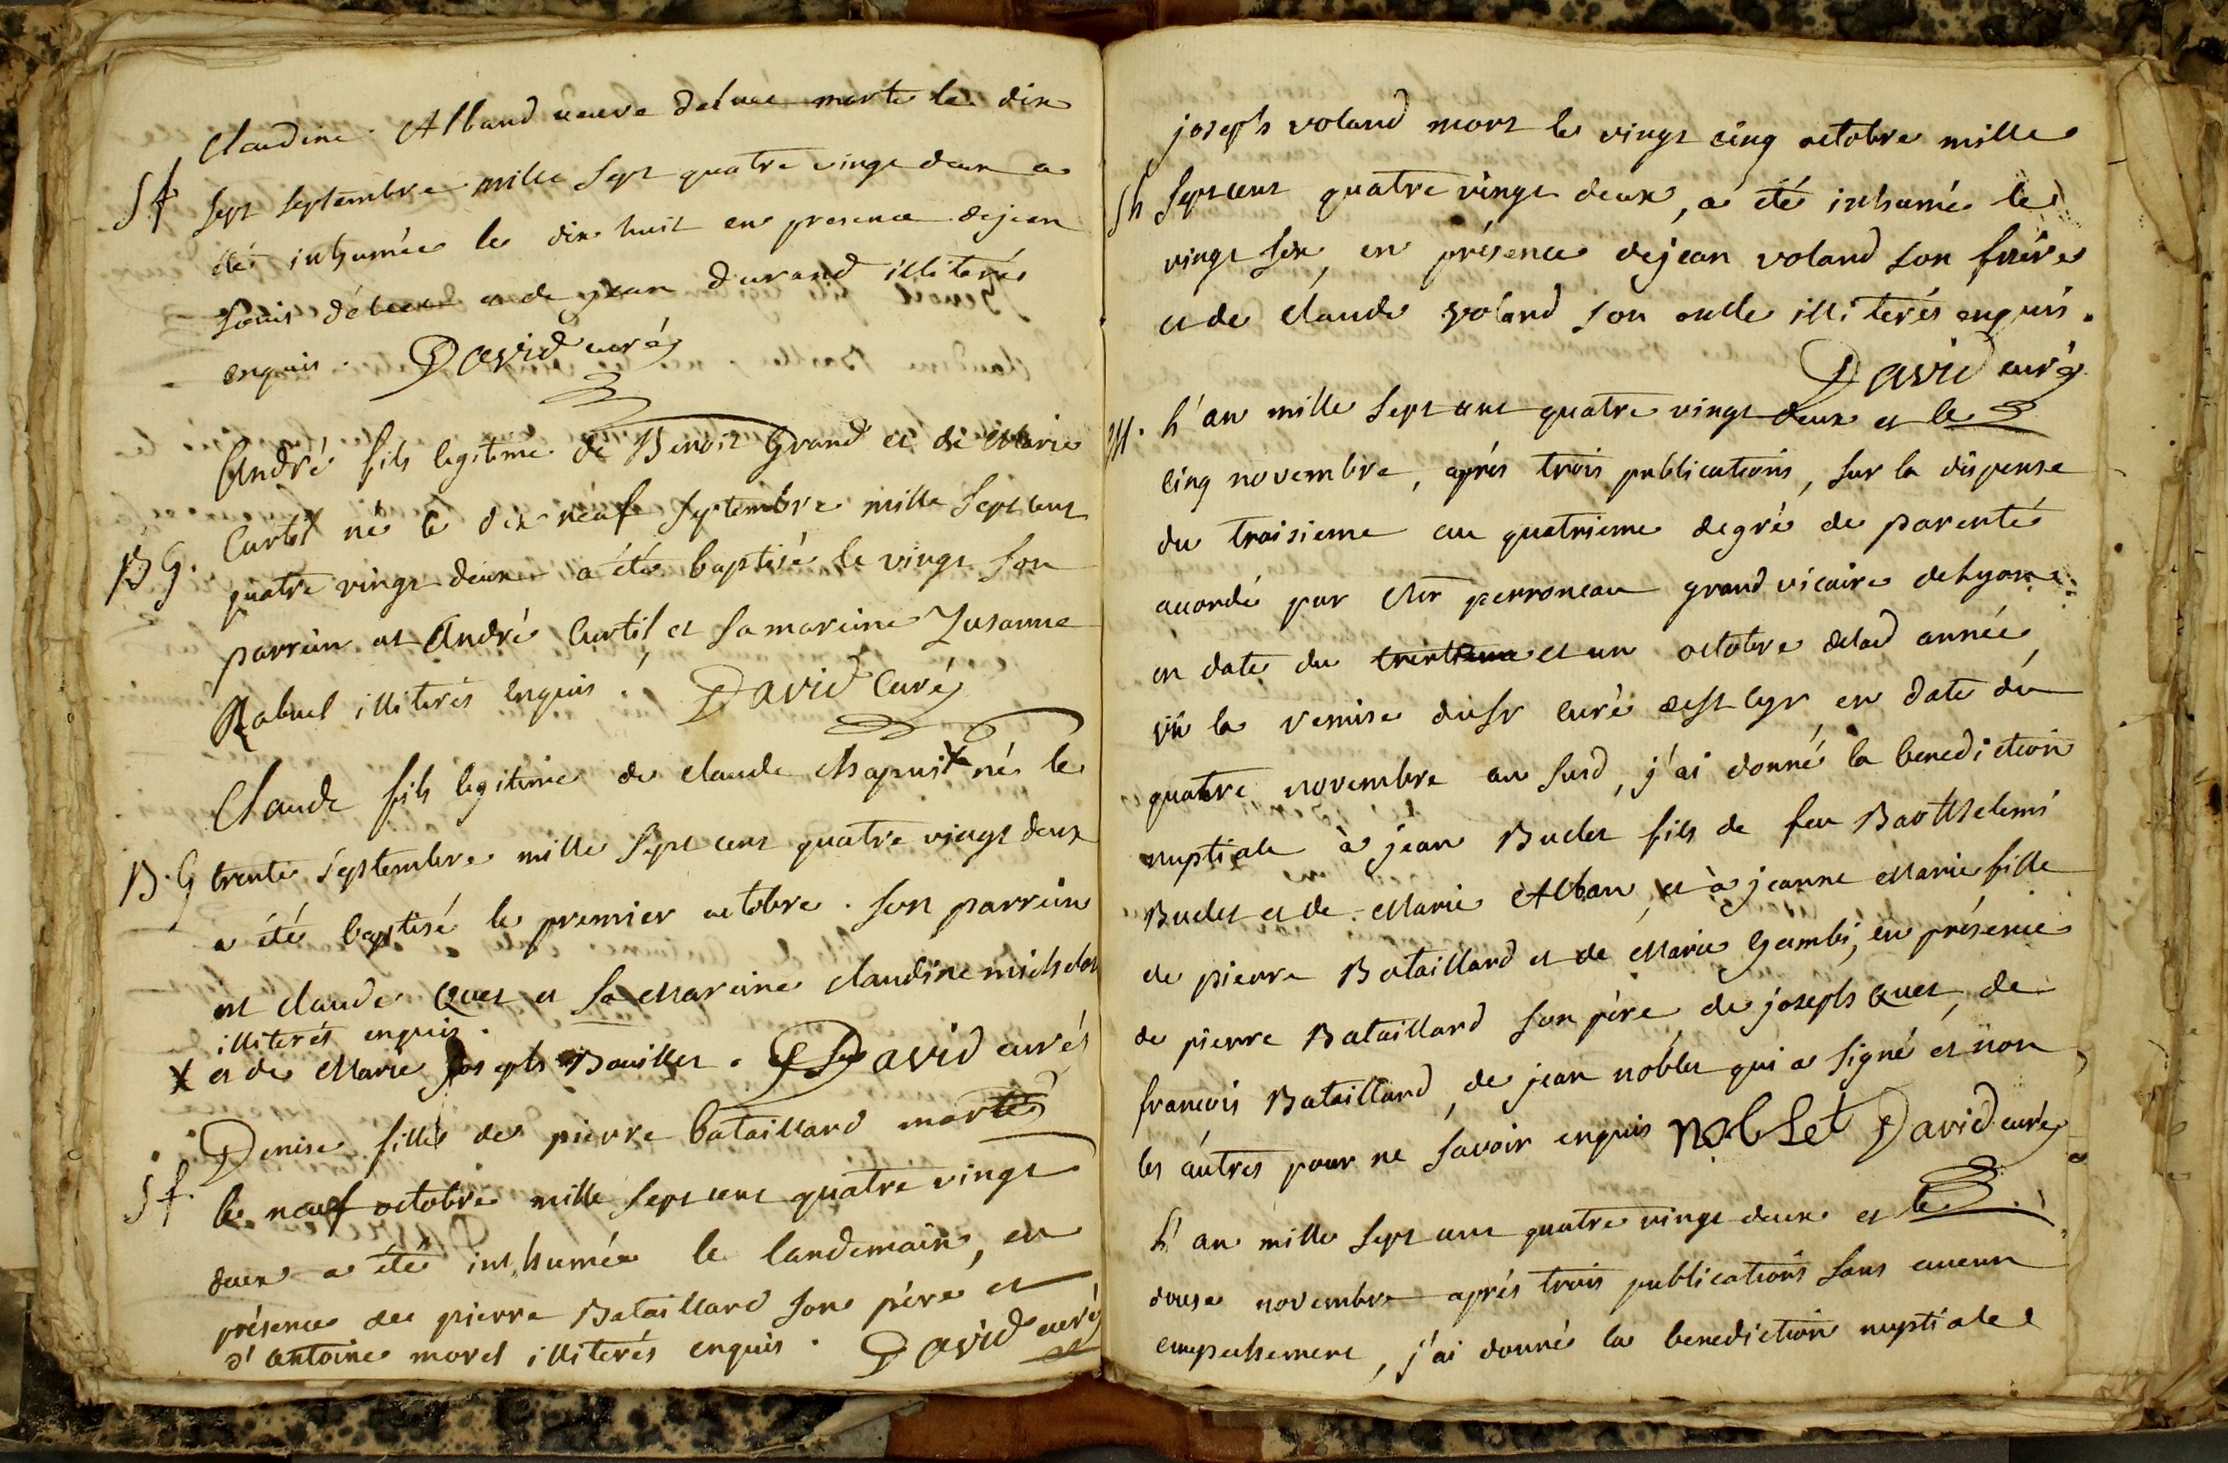 Claudine Alband veuve morte le dix
S f sept septembre mille sept quatre vingt deux a
été inhumée le dix huit en presence de jean
Louis et de jean durand illiterés
enquis. David curé
André fils legitime de Benoit Grand et de Marie
Curtil né le dix neuf septembre mille sept cent
B G. quatre vingt deux a été baptisé le vingt son
parrain est André Curtil, et sa mareine Susanne
Rabuel illiterés enquis. David Curé
Claude fils legitime de claude chapuis X né le
B. G trente septembre mille sept cent quatre vingt deux
a été baptisé le premier octobre. son parrein
est claude Quet et sa mareine claudine
illiterés enquis.
X et de Marie joseph Bouillet. David curé
Denise fille de pierre bataillard morte
S f. le neuf octobre mille sept cent quatre vingt
deux a été inhumée le landemain, en
présence de pierre Bataillard son père et
d'antoine morel illiterés enquis. David curé
joseph voland mort le vingt cinq octobre mille
S h sept cent quatre vingt deux, a été inhumé le
vingt six, en présence de jean voland son frère
et de claude voland son oncle illiterés enquis.
David curé
M. L'an mille sept cent quatre vingt deux et le
cinq novembre, après trois publications, sur la dispense
du troisieme au quatrieme degré de parenté
acordé par Mr perroneau grand vicaire de Lyon
en date du et un octobre delad année,
vû la remise du sr curé de st cyr en date du
quatre novembre an susd, j'ai donné la benediction
nuptiale à jean Budet fils de feu Barthelemi
Budet et de Marie Alban, et à jeanne Marie fille
de pierre Bataillard et de Marie Gambi, en présence
de pierre Bataillard son père, de joseph Quet, de
francois Bataillard, de jean noblet qui a signé et non
les autres pour ne savoir enquis noblet David curé
L'an mille sept cent quatre vingt deux et le
douse novembre après trois publications sans aucun
empechement, j'ai donné la benediction nuptiale